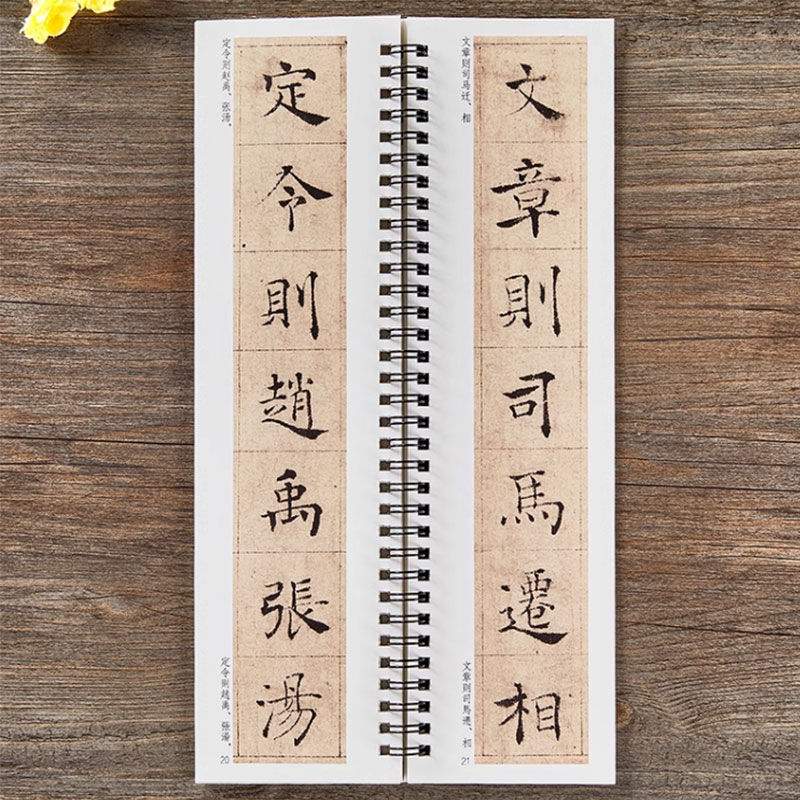 定令則趙禹張湯
定令则赵禹、张汤。
定令則趙禹、張湯。
20
文章則司馬遷相
文章则司马迁、相
文章則司馬遷、相
21